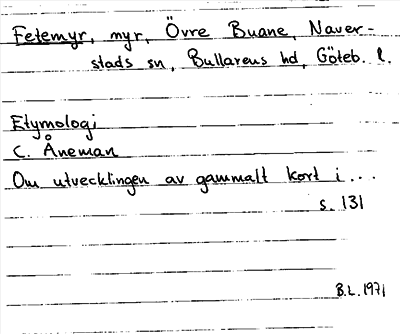 Fetemyr, myr, Övre Buane, Naver-
stads sn, Bullarens hd, Göteb. l.
Etymologi
C. Åneman
Om utvecklingen av gammalt kort i...
s. 131
B.L. 1971